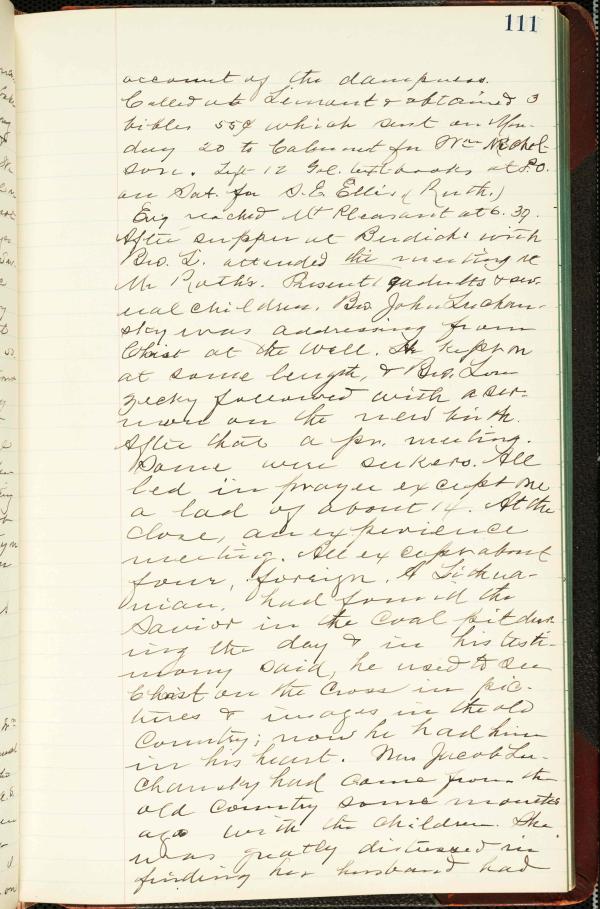 111
account of the dampness.
Called at Lemont & obtained 3
bibles 55¢ which sent on Mon-
day 20 to Cabinet for Wm Nichol-
son. Left 12 Gol. text books at P.O.
on Sat. for S. E. Ellis (Ruth.)
Evg reached Mt Pleasant at 6.30.
After supper at with
Bro. L. attended the meeting at
Mr Roth's. Present adults & sev-
eral children. Bro. John Luchan-
sky was addressing from
Christ at the Well. He kept on
at some length, & Bro. Lou
zecky followed with a ser-
mon on the new birth.
After that a pr. meeting.
Some were seekers. All
led in prayer except one
a lad of about 14. At the
close, an experience
meeting. All except about
four, foreign. A Lithua-
nian, had found the
Savior in the coal pit dur-
ing the day & in his testi-
mony said, he used to see
Christ on the Cross in pic-
tures & images in the old
Country; now he had him
in his heart. Mrs Jacob Lu-
chansky had come from the
old Country some months
ago with the children. She
was greatly distressed in
finding her husband had